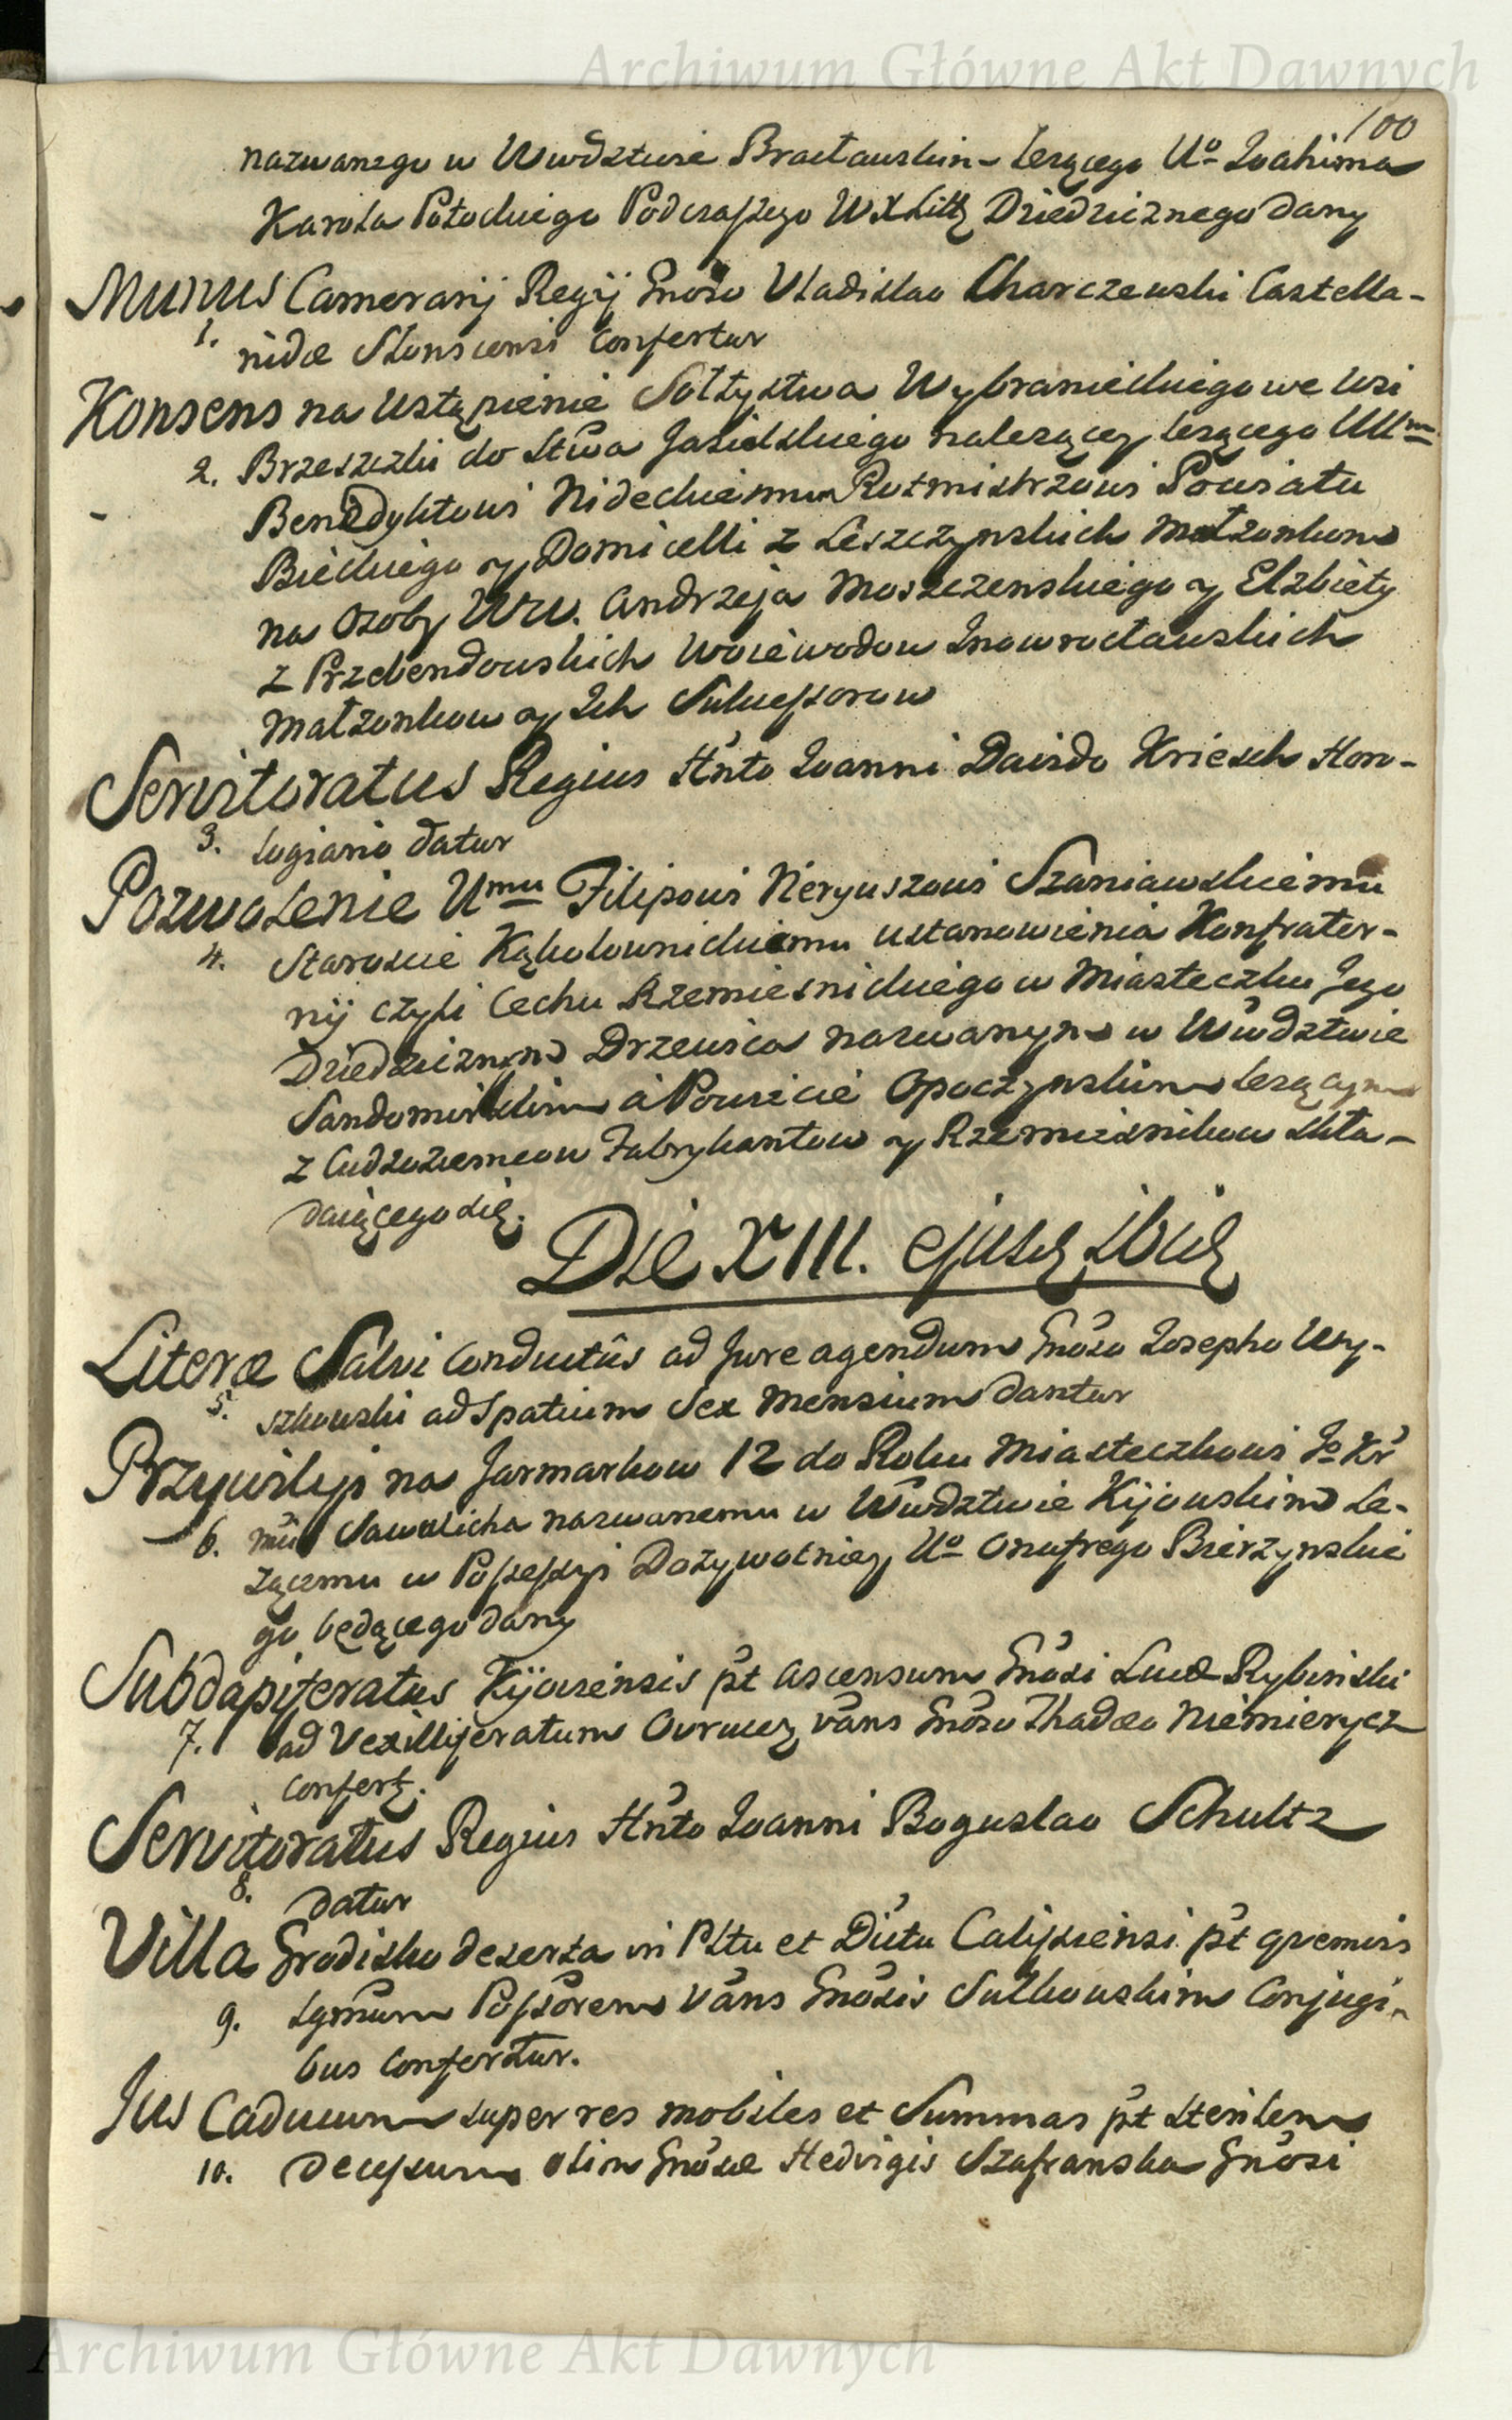 Archiwum Główne Akt Dawnych
100
nazwanego w Wwdztwie Bracławskim leżącego Uo Joahima
Karola Potockiego Podczaszego WXLitt Dziedzicznego dany
Munus Camerarij Regij Gnoso Vladislao Charczewski Castella-
1. nidæ Słonscensi Confertur
Konsens na Ustąpienie Sołtystwa Wybranieckiego we Wsi
2. Brzeszczki do Stwa Jasielskiego należącey leżącego UUm
Benedyktowi Nideckiemu Rotmistrzowi Powiatu
Bieckiego y Domicelli z Leszczynskich Małzonkom
na Osoby WW. Andrzeja Moszczenskiego y Elzbiety
z Przebendowskich Woiewodow Inowrocławskich
Małzonkow y Ich Sukcessorow
Servitoratus Regius Hnto Joanni Davido Kriesch Horo-
3. logiario datur
Pozwolenie Umu Filipowi Neryuszowi Szaniawskiemu
4. Staroscie Kąkolownickiemu ustanowienia Konfrater-
nij czyli Cechu Rzemiesnickiego w Miasteczku Jego
Dziedzicznym Drzewica nazwanym w Wwdztwie
Sandomirskim a Powiecie Opoczynskim leżącym
z Cudzoziemcow Fabrykantow y Rzemieslnikow skła-
daiącego się.
Die XIII. ejusd ibid
Literæ Salvi Conductûs ad Jure agendum Gnoso Josepho Wy-
5. szkowski ad Spatium Sex Mensium dantur
Przywiley na Jarmarkow 12 do Roku Miasteczkowi Jo Kr
6. mci Sawalicha nazwanemu w Wwdztwie Kijowskim Le-
żącemu w Possessyi Dożywotniey Uo Onufrego Bierzynskie
go będącego dany
Subdapiferatus Kijoviensis pt ascensum Gnosi Lucæ Rybinski
7. ad Vexilliferatum Ovrucz vans Gnoso Thadæo Niemierycz
confert.
Servitoratus Regius Hnto Joanni Boguslao Schultz
8. datur
Villa Grodisko deserta in Pltu et Dittu Calissiensi pt gremis
9. Possorem vans Gnosis Sulkowskim Conjugi-
bus confertur.
Jus Caducum super res mobiles et Summas pt sterilem
10. decessum olim Gnosæ Hedvigis Szafranska Gnosi
Archiwum Główne Akt Dawnych